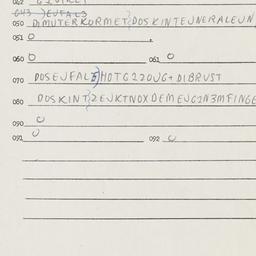 042
043 JEUFAL3
050 DIMUTERKORMET DOSKINTEJNERALEUN
051 O
060 O 061 O
070 DOSEJFALE)HOTG22OUG+DIBRUST
080 DOSKINT2EJKTNOXDEMEJG2N3MFINGE
090 O
091 O 092 O